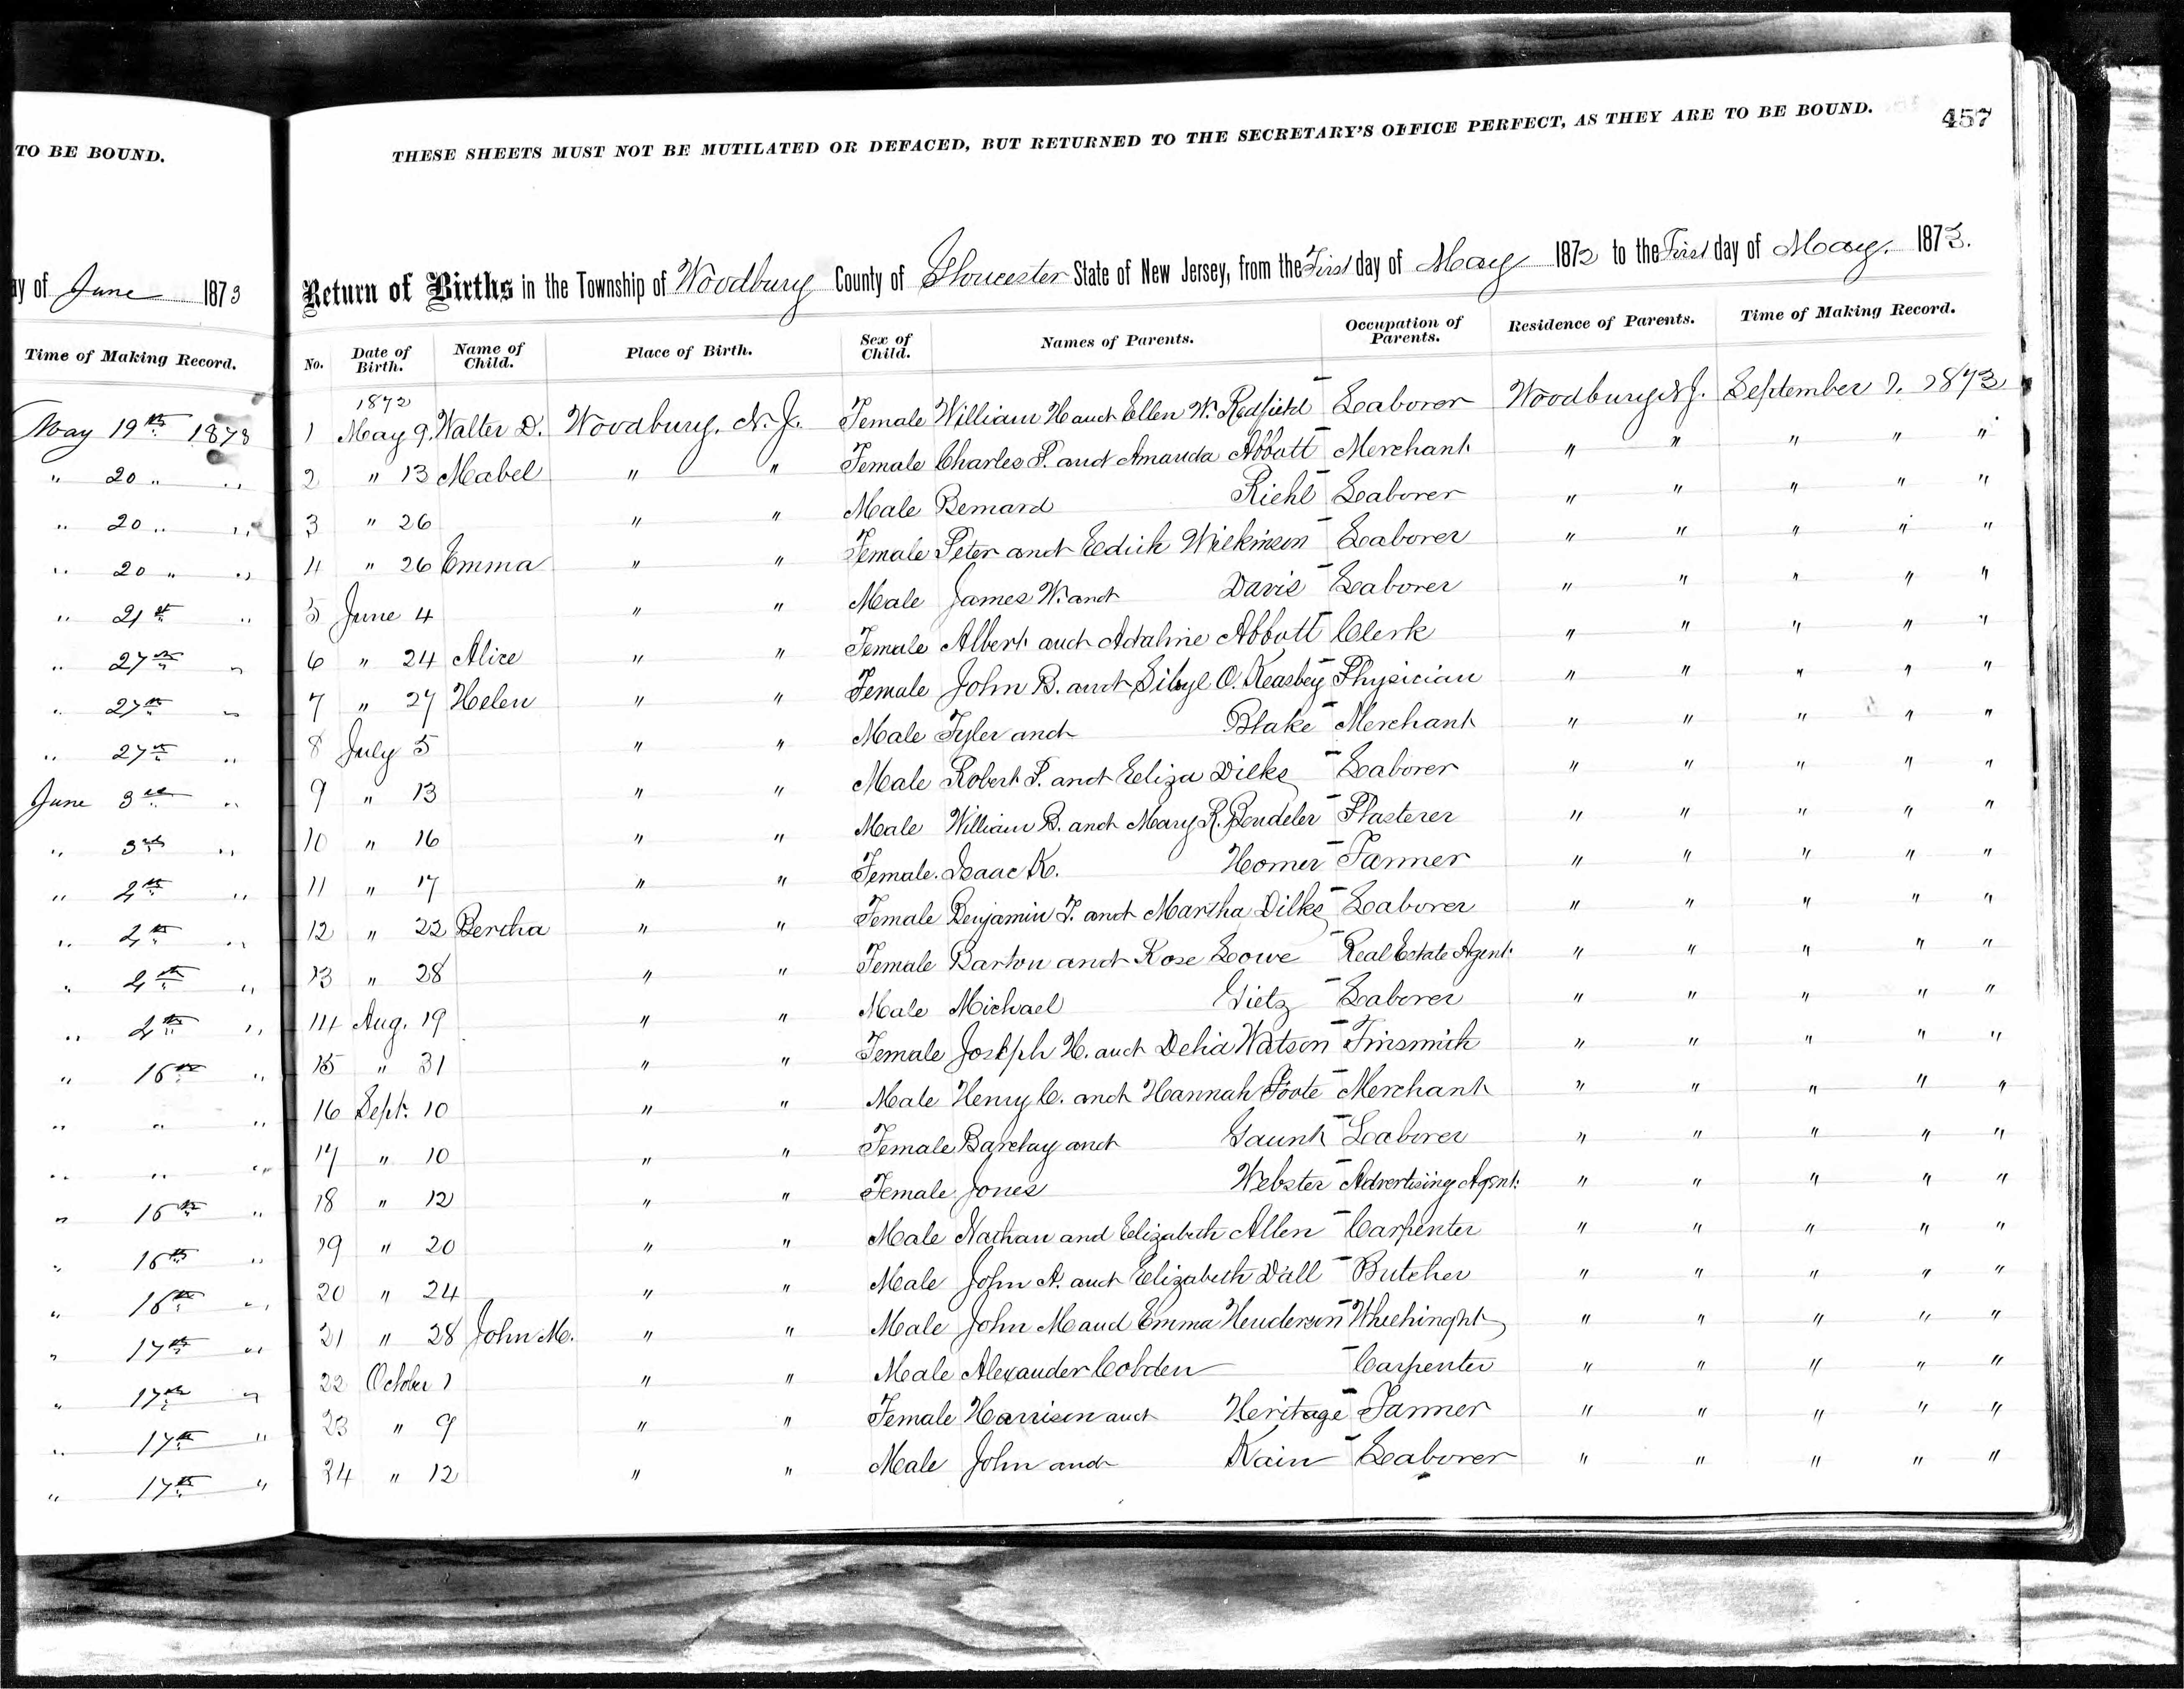 TO BE BOUND.
ay of June 1873
Time of Making Record.
May 19th 1873
" 20 " "
" 20 " "
" 20 " "
" 21st "
" 27th "
" 27th "
" 27th "
June 3rd "
" 3rd "
" 4th "
" 4th "
" 4th "
" 4th "
" 16th "
" " "
" " "
" 16th "
" 16th "
" 16th "
" 17th "
" 17th "
" 17th "
" 17th "
457
THESE SHEETS MUST NOT BE MUTILATED OR DEFACED, BUT RETURNED TO THE SECRETARY'S OFFICE PERFECT, AS THEY ARE TO BE BOUND.
Return of Births in the Township of Woodbury County of Gloucester State of New Jersey, from the First day of May 1872 to the First day of May. 1873.
No. Date of Birth. Name of Child. Place of Birth. Sex of Child. Names of Parents. Occupation of Parents. Residence of Parents. Time of Making Record.
1872
1 May 9. Walter D. Woodbury. N. J. Female William H and Ellen W. Redfield Laborer Woodbury N J. September 1. 1873
2 " 13 Mabel " " Female Charles P. and Amanda Abbott Merchant " " " " "
3 " 26 " " Male Bernard Riehl Laborer " " " " "
4 " 26 Emma " " Female Peter and Edith Wilkinson Laborer " " " " "
5 June 4 " " Male James W. and Davis Laborer " " " " "
6 " 24 Alice " " Female Albert and Adaline Abbott Clerk " " " " "
7 " 27 Helen " " Female John B. and Sibyl O. Keasbey Physician " " " " "
8 July 5 " " Male Tyler and Blake Merchant " " " " "
9 " 13 " " Male Robert P. and Eliza Dilks Laborer " " " " "
10 " 16 " " Male William B. and Mary R. Bendeler Plasterer " " " " "
11 " 17 " " Female. Isaac K. Horner Farmer " " " " "
12 " 22 Bertha " " Female Benjamin F. and Martha Dilks Laborer " " " " "
13 " 28 " " Female Barton and Rose Lowe Real Estate Agent. " " " " "
14 Aug. 19 " " Male Michael Gietz Laborer " " " " "
15 " 31 " " Female Joseph H. and Delia Watson Tinsmith " " " " "
16 Sept. 10 " " Male Henry C. and Hannah Foote Merchant " " " " "
17 " 10 " " Female Barclay and Gaunt Laborer " " " " "
18 " 12 " " Female Jones Webster Advertising Agent. " " " " "
19 " 20 " " Male Nathan and Elizabeth Allen Carpenter " " " " "
20 " 24 " " Male John A. and Elizabeth Dall Butcher " " " " "
21 " 28 John M. " " Male John M and Emma Henderson Wheelwright " " " " "
22 October 1 " " Male Alexander Cobden Carpenter " " " " "
23 " 9 " " Female Harrison and Heritage Farmer " " " " "
24 " 12 " " Male John and Kain Laborer " " " " "